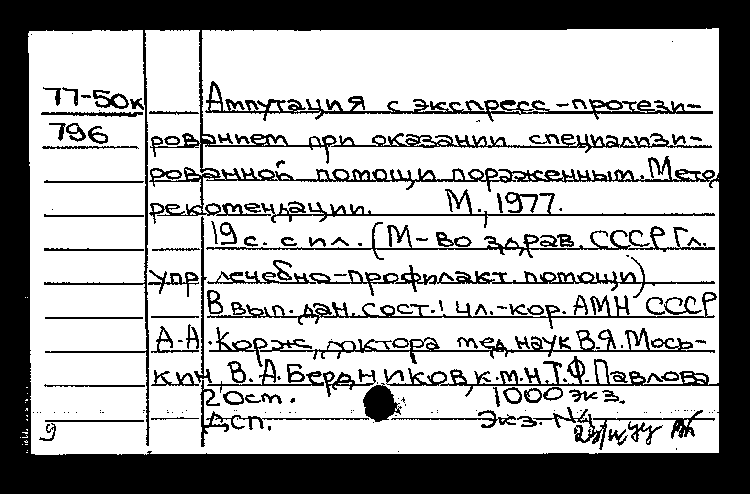 77-50к Ампутация с экспресс-протези-
796 рованием при оказании специализи-
рованной помощи пораженным. Метод
рекомендации. М., 1977.
19 с. с ил. (М-во здрав. СССР. Гл.
упр. лечебно-профилакт. помощи)
В вып. дан. сост.: чл.-кор. АМН СССР
А.А. Корж, доктора мед. наук В.Я. Мось-
кин, В.А. Бердников, к.м.н. Т.Ф. Павлова
20 ст. 1000 экз.
Дсп. Экз. N4
9